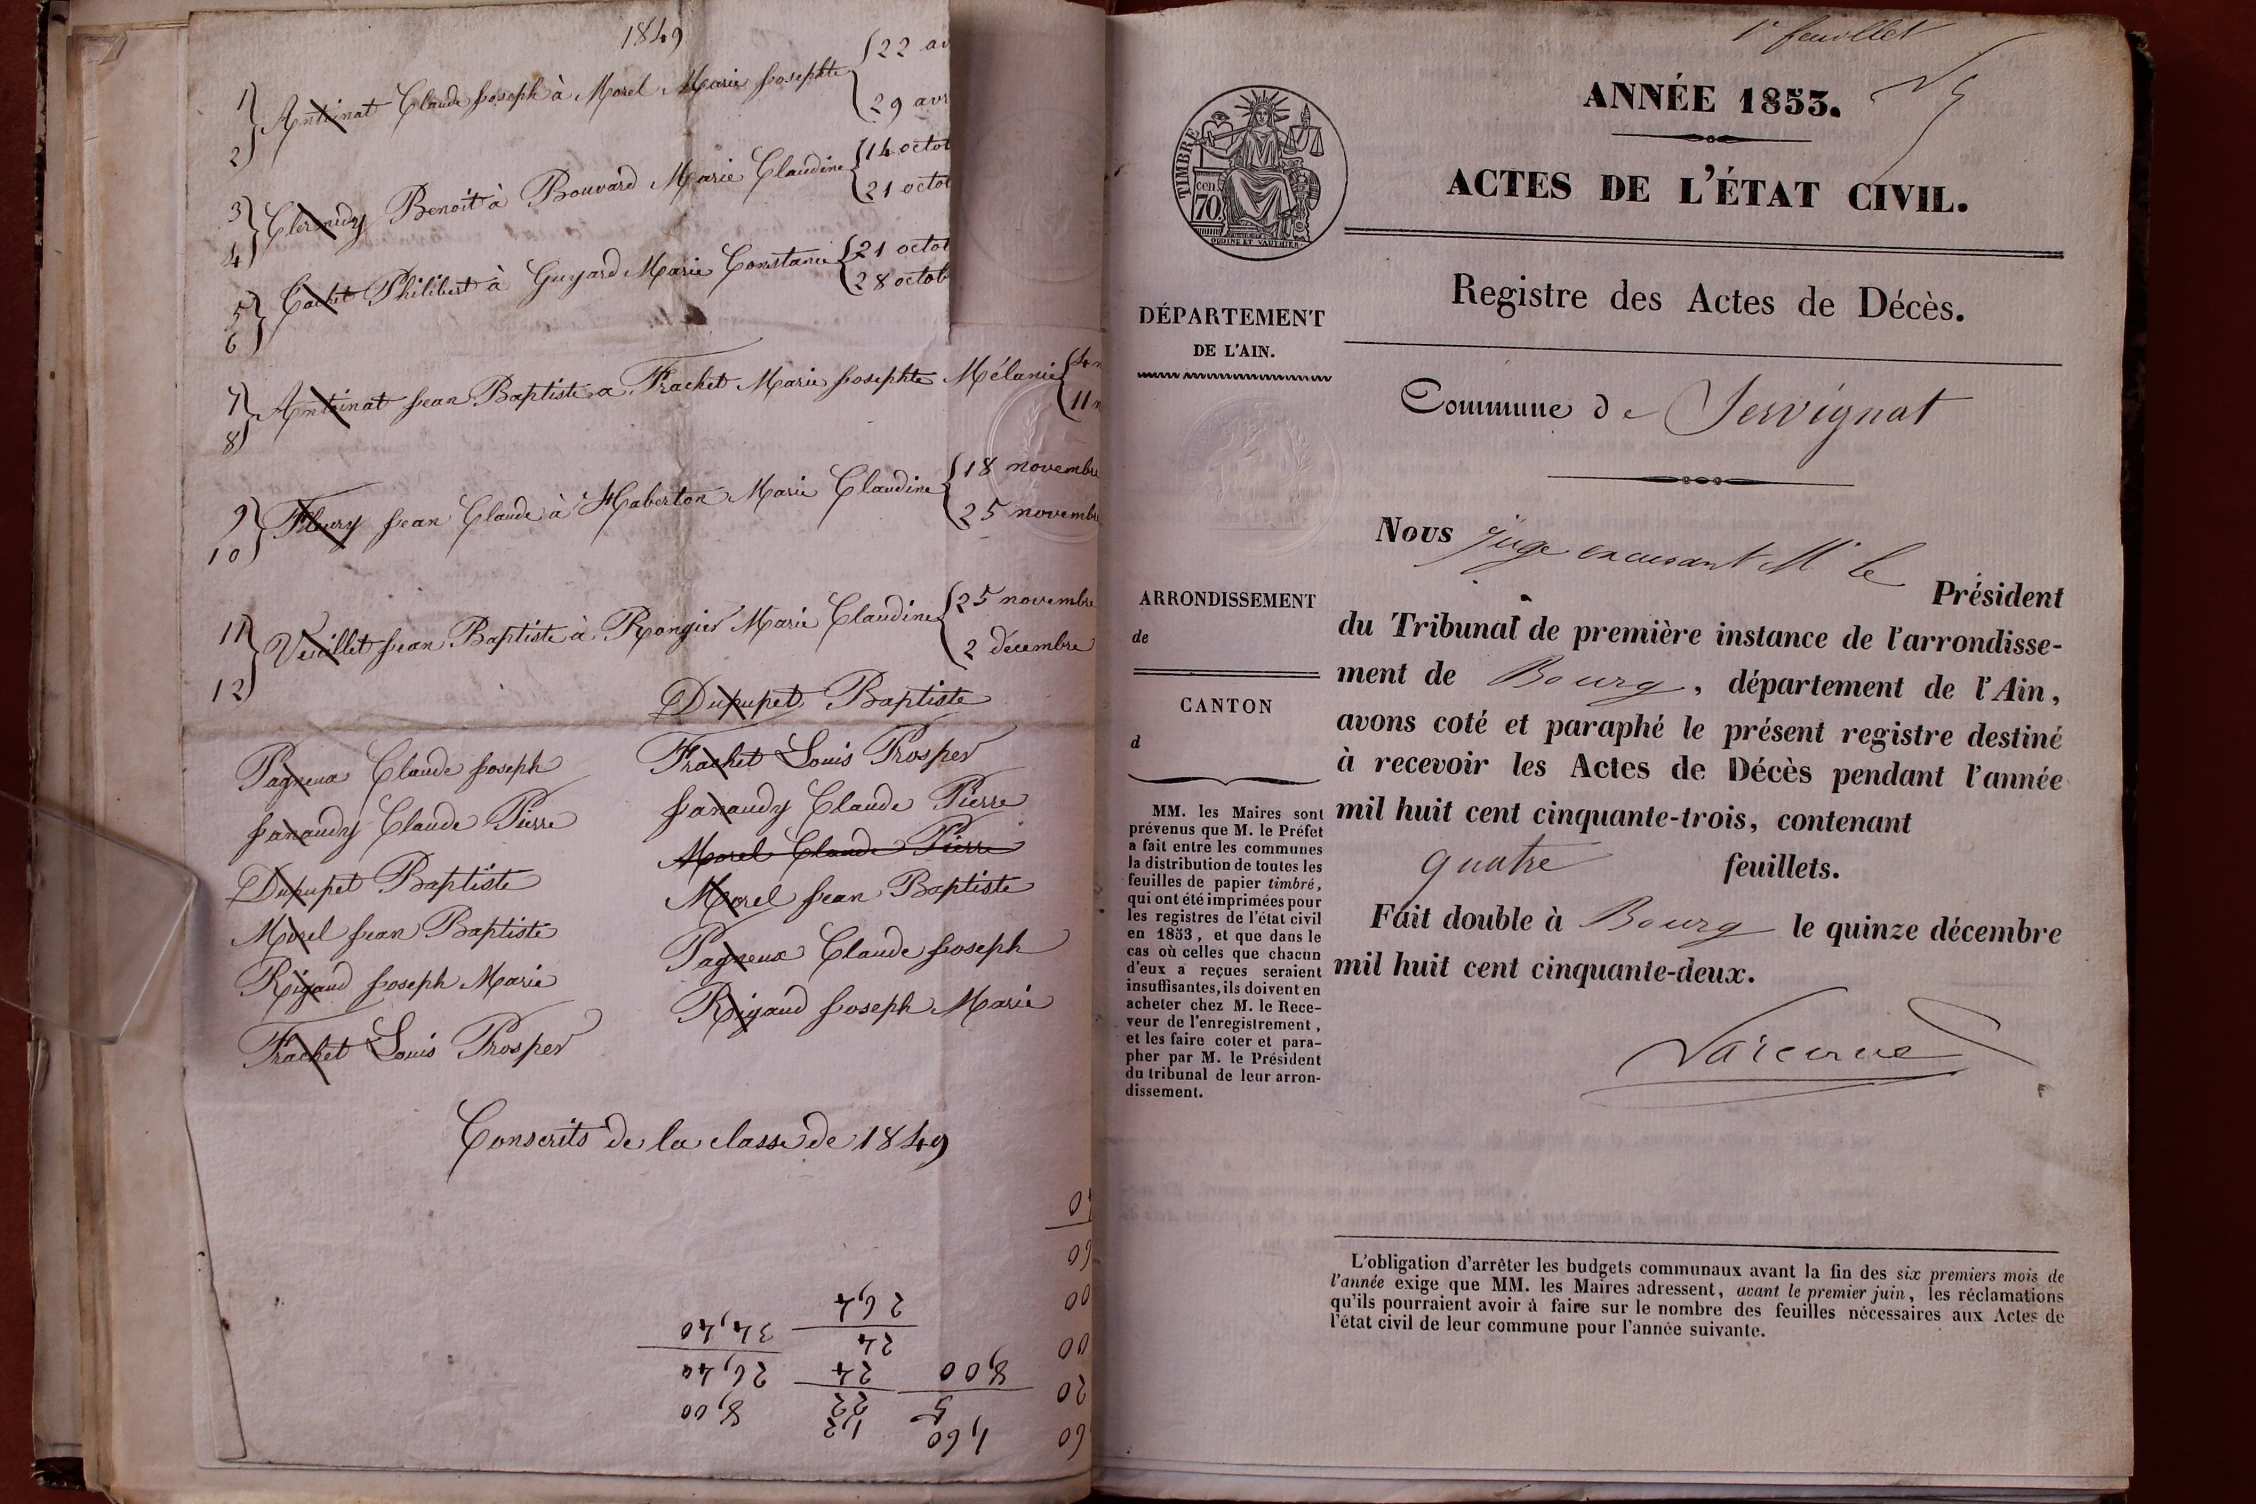 1849
1 Antoinat Claude Joseph à Morel Marie Josephte 22 av
2 29 avr
3 Clermidy Benoit à Bouvard Marie Claudine 14 octob
4 21 octob
5 Cachet Philibert à Guyard Marie Constanie 21 octob
6 28 octob
7 Antoinat Jean Baptiste a Frachet Marie Josephte Mélanie 4 n
8 11 n
9 Fleury Jean Claude à Haberton Marie Claudine 18 novembre
10 25 novembre
11 Veuillet Jean Baptiste à Rongier Marie Claudine 25 novembre
12 2 décembre
Dupupet Baptiste
Pagneux Claude Joseph
Frachet Louis Prosper
Janaudy Claude Pierre
Janaudy Claude Pierre
Morel Claude Pierre
Dupupet Baptiste
Morel Jean Baptiste
Morel Jean Baptiste
Pagneux Claude Joseph
Rigaud Joseph Marie
Rigaud Joseph Marie
Frachet Louis Prosper
Conscrits de la classe de 1849
1,60
5
8,00
1,2
22
24
24
2 6,4
8,00
26,40
34,40
60
20
00
00
60
1r feuillet
ANNÉE 1853.
ACTES DE L'ÉTAT CIVIL.
TIMBRE
70 cen
OUDINE ET VAUTHIER
Registre des Actes de Décès.
DÉPARTEMENT
DE L'AIN.
Commune de Servignat
Nous juge excusant Mr le Président
du Tribunal de première instance de l'arrondisse-
ment de Bourg, département de l'Ain,
avons coté et paraphé le présent registre destiné
à recevoir les Actes de Décès pendant l'année
mil huit cent cinquante-trois, contenant
quatre feuillets.
Fait double à Bourg le quinze décembre
mil huit cent cinquante-deux.
ARRONDISSEMENT
de
CANTON
d
MM. les Maires sont
prévenus que M. le Préfet
a fait entre les communes
la distribution de toutes les
feuilles de papier timbré,
qui ont été imprimées pour
les registres de l'état civil
en 1853, et que dans le
cas où celles que chacun
d'eux a reçues seraient
insuffisantes, ils doivent en
acheter chez M. le Rece-
veur de l'enregistrement,
et les faire coter et para-
pher par M. le Président
du tribunal de leur arron-
dissement.
L'obligation d'arrêter les budgets communaux avant la fin des six premiers mois de
l'année exige que MM. les Maires adressent, avant le premier juin, les réclamations
qu'ils pourraient avoir à faire sur le nombre des feuilles nécessaires aux Actes de
l'état civil de leur commune pour l'année suivante.